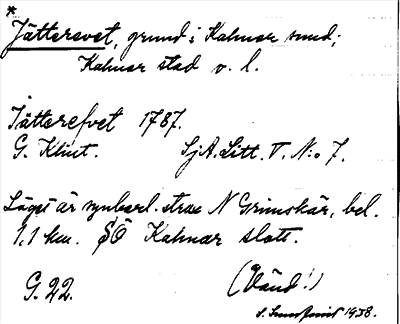 *
Jättersvet, grund i Kalmar sund;
Kalmar stad o. l.
Jätterefvet 1787.
G. Klint. SjA. Litt. V. N:o 7.
Läget är synbarl. strax N Grimskär, bel.
1.1 km. SÖ Kalmar slott.
G. 22. (Vänd!)
1938.